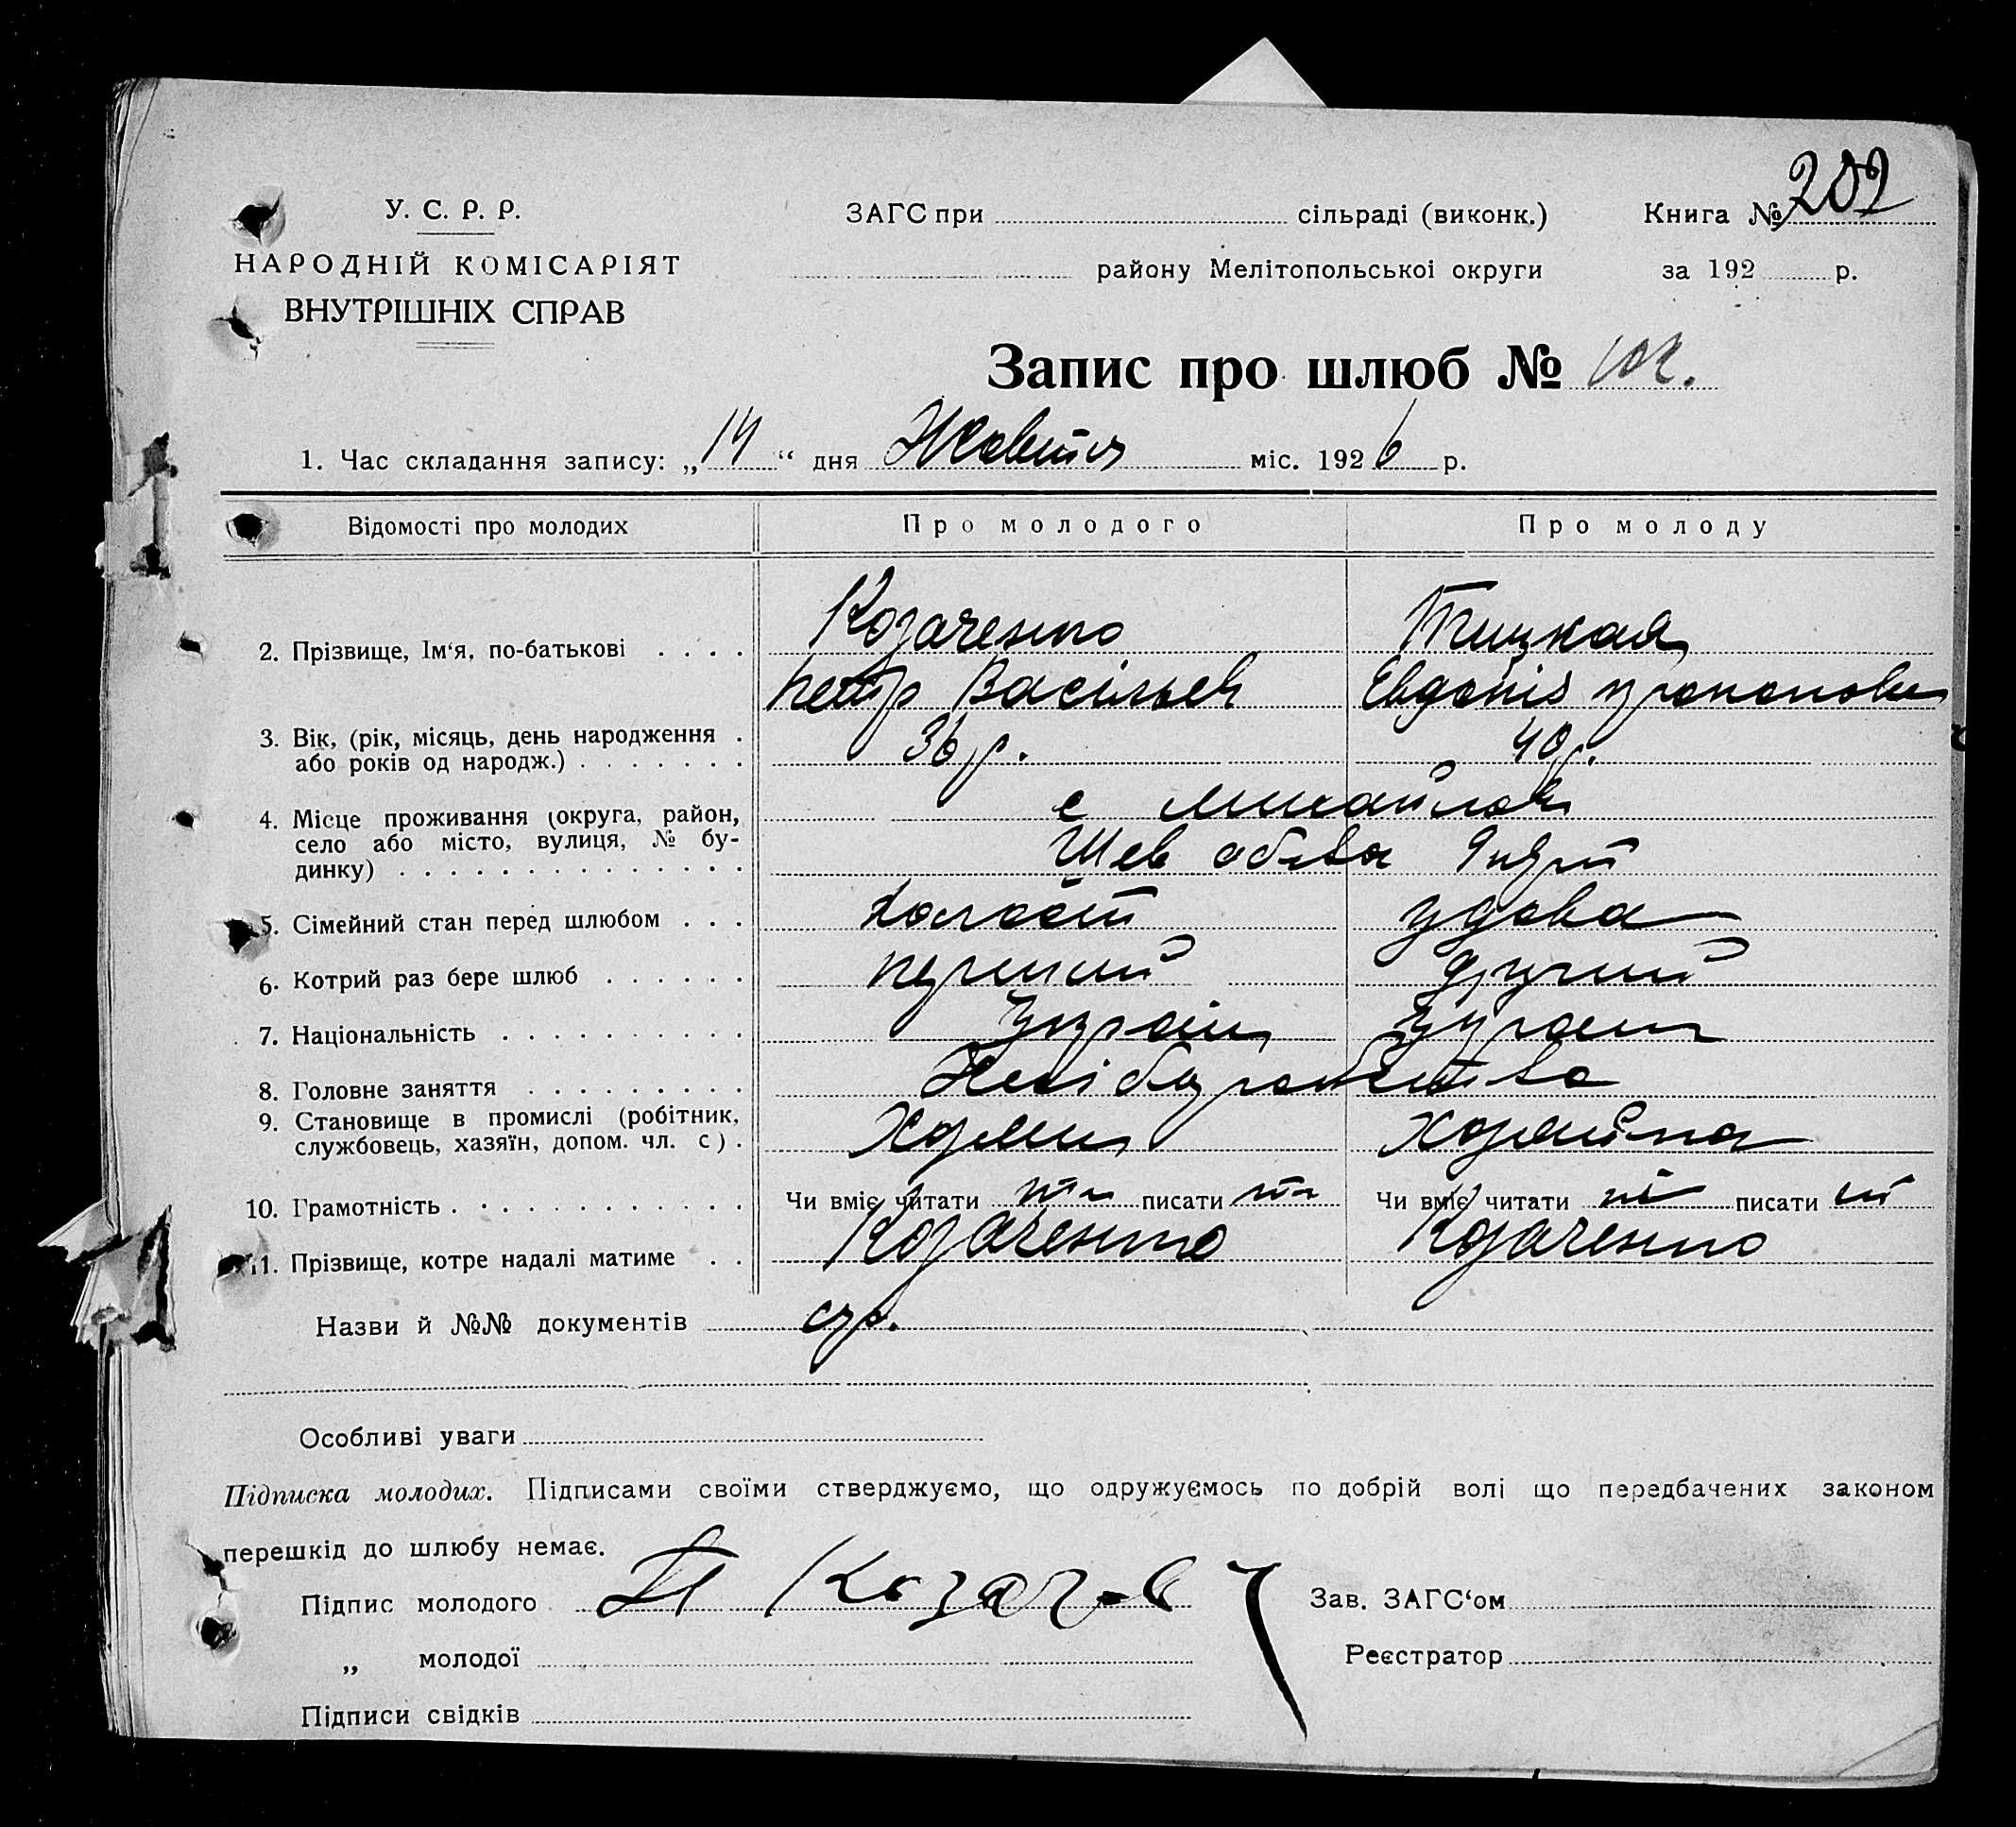 202
У. С. Р. Р.
ЗАГС при сільраді (виконк.) Книга №
НАРОДНІЙ КОМІСАРІЯТ
району Мелітопольськоі округи за 192 р.
ВНУТРІШНІХ СПРАВ
Запис про шлюб №
1. Час складання запису: „14“ дня Жовтня міс. 1926 р.
Відомості про молодих Про молодого Про молоду
Козаченко
2. Прізвище, Ім‘я, по-батькові
Петр Васільев Евдокія
3. Вік, (рік, місяць, день народження 36 р. 40 р.
або років од народж.)
4. Місце проживання (округа, район, с
село або місто, вулиця, № бу-
динку)
5. Сімейний стан перед шлюбом холост удова
6. Котрий раз бере шлюб перший другий
7. Національність
8. Головне заняття Хліборобства
9. Становище в промислі (робітник,
службовець, хазяїн, допом. чл. с)
10. Грамотність Чи вміє читати писати Чи вміє читати писати
11. Прізвище, котре надалі матиме Козаченко Козаченко
Назви й №№ документів
Особливі уваги
Підписка молодих. Підписами своїми стверджуємо, що одружуємось по добрій волі що передбачених законом
перешкід до шлюбу немає.
Підпис молодого Зав. ЗАГС‘ом
„ молодої Реєстратор
Підписи свідків